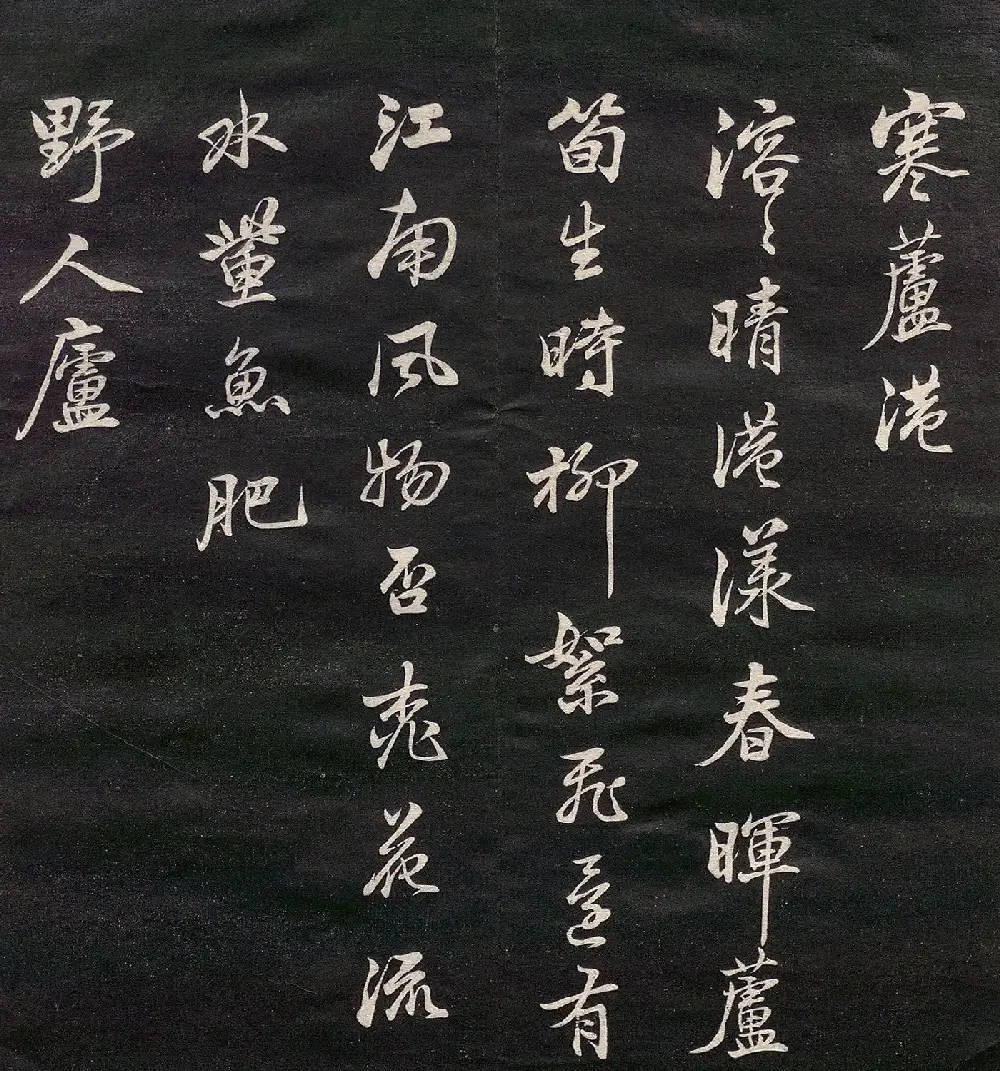 寒蘆港
溶〻晴港漾春暉蘆
筍生時柳絮飛還有
江南風物否桃花流
水魚肥
野人廬